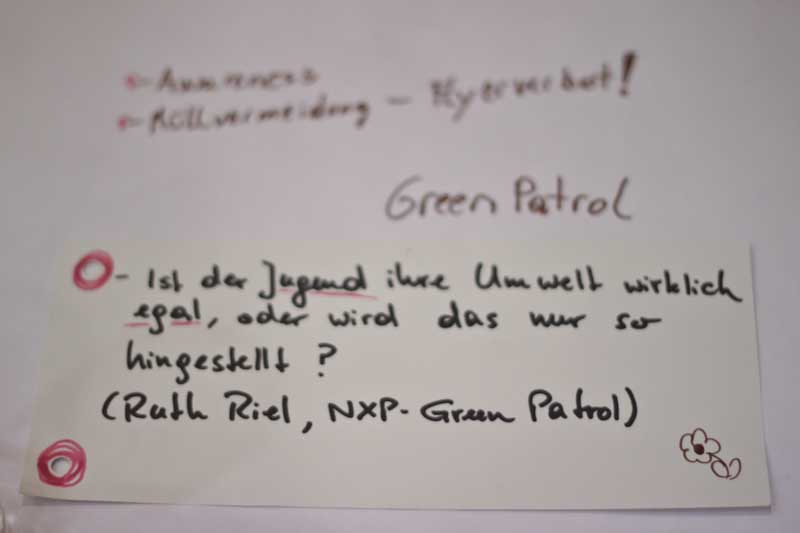 - Awareness
- Müllvermeidung - Flyerverbot!
Green Patrol
- Ist der Jugend ihre Umwelt wirklich
egal, oder wird das nur so
hingestellt?
(Ruth Riel, NXP-Green Patrol)